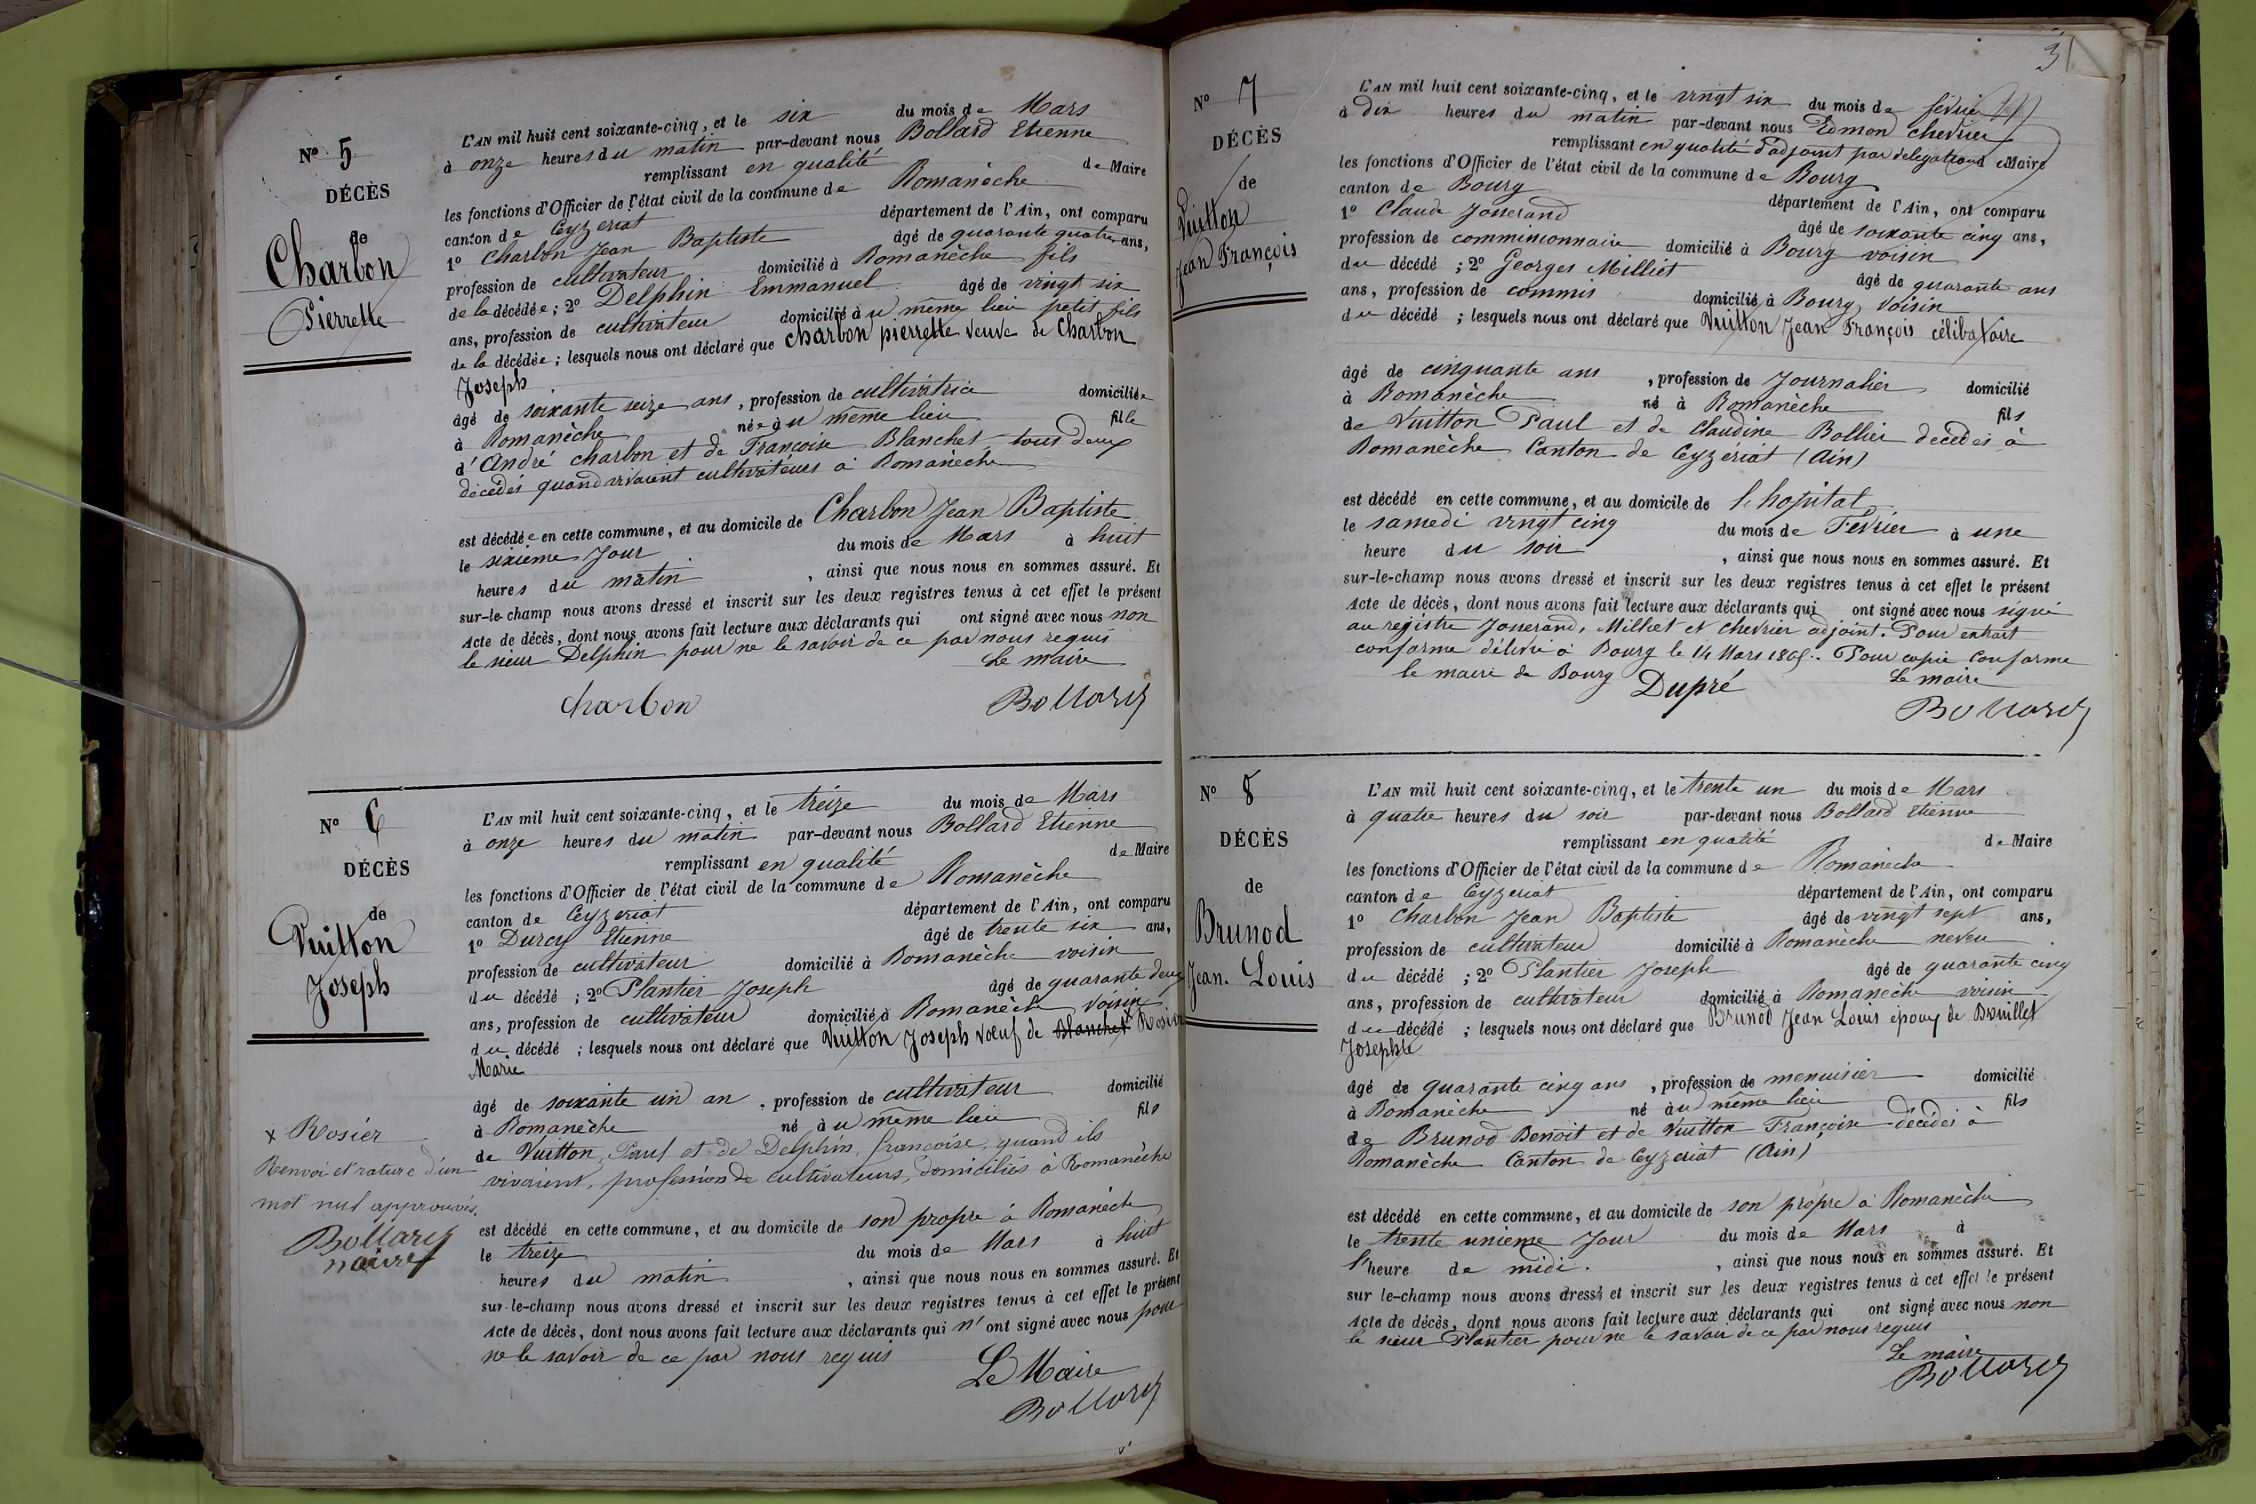 Nº 5
DÉCÈS
de
Charbon
Pierrette
L'AN mil huit cent soixante-cinq, et le six du mois de Mars
à onze heures du matin par-devant nous Bollard Etienne
remplissant en qualité de Maire
les fonctions d'Officier de l'état civil de la commune de Romanèche
canton de Ceyzeriat département de l'Ain, ont comparu
1º Charbon Jean Baptiste âgé de quarante quatre ans,
profession de cultivateur domicilié à Romanèche fils
de la décédée ; 2º Delphin Emmanuel âgé de vingt six
ans, profession de cultivateur domicilié au même lieu petit fils
de la décédée ; lesquels nous ont déclaré que charbon pierrette veuve de Charbon
Joseph
âgé de soixante seize ans, profession de cultivatrice domiciliée
à Romanèche née au même lieu fille
d'André charbon et de Françoise Blanchet tous deux
décédés quand vivaient cultivateurs à Romanèche
est décédée en cette commune, et au domicile de Charbon Jean Baptiste
le sixième Jour du mois de Mars à huit
heures du matin , ainsi que nous nous en sommes assuré. Et
sur-le-champ nous avons dressé et inscrit sur les deux registres tenus à cet effet le présent
Acte de décès, dont nous avons fait lecture aux déclarants qui ont signé avec nous non
le sieur Delphin pour ne le savoir de ce par nous requis
Le maire
charbon Bollard
Nº 6
DÉCÈS
de
Vuitton
Joseph
L'AN mil huit cent soixante-cinq, et le treize du mois de Mars
à onze heures du matin par-devant nous Bollard Etienne
remplissant en qualité de Maire
les fonctions d'Officier de l'état civil de la commune de Romanèche
canton de Ceyzeriat département de l'Ain, ont comparu
1º Durcy Etienne âgé de trente six ans,
profession de cultivateur domicilié à Romanèche voisin
du décédé ; 2º Plantier Joseph âgé de quarante deux
ans, profession de cultivateur domicilié à Romanèche voisin
du décédé ; lesquels nous ont déclaré que Vuitton Joseph vœuf de Blanchet x Rosier
Marie
âgé de soixante un an, profession de cultivateur domicilié
à Romanèche né au même lieu fils
de Vuitton Paul et de Delphin françoise, quand ils
vivaient, profession de cultivateurs, domiciliés à Romanèche
est décédé en cette commune, et au domicile de son propre à Romanèche
le treize du mois de Mars à huit
heures du matin , ainsi que nous nous en sommes assuré. Et
sur-le-champ nous avons dressé et inscrit sur les deux registres tenus à cet effet le présent
Acte de décès, dont nous avons fait lecture aux déclarants qui n'ont signé avec nous pour
ne le savoir de ce par nous requis
Le Maire
Bollard
x Rosier
Renvoi et rature d'un
mot nul approuvés.
Bollard
maire
3
Nº 7
DÉCÈS
de
Vuitton
Jean François
L'AN mil huit cent soixante-cinq, et le vingt six du mois de février
à dix heures du matin par-devant nous Edmon chevrier
remplissant en qualité d'adjoint par délégation Maire
les fonctions d'Officier de l'état civil de la commune de Bourg
canton de Bourg département de l'Ain, ont comparu
1º Claude Josserand âgé de soixante cinq ans,
profession de commissionnaire domicilié à Bourg voisin
du décédé ; 2º Georges Milliet âgé de quarante ans
ans, profession de commis domicilié à Bourg, voisin
du décédé ; lesquels nous ont déclaré que Vuitton Jean François célibataire
âgé de cinquante ans, profession de Journalier domicilié
à Romanèche né à Romanèche fils
de Vuitton Paul et de Claudine Bollier décédés à
Romanèche Canton de Ceyzeriat (Ain)
est décédé en cette commune, et au domicile de l'hopital
le samedi vingt cinq du mois de Fevrier à une
heure du soir , ainsi que nous nous en sommes assuré. Et
sur-le-champ nous avons dressé et inscrit sur les deux registres tenus à cet effet le présent
Acte de décès, dont nous avons fait lecture aux déclarants qui ont signé avec nous signé
au registre Josserand, Milliet et chevrier adjoint. Pour extrait
conforme délivré à Bourg le 14 Mars 1865. Pour copie conforme
le maire de Bourg Dupré Le maire
Bollard
Nº 8
DÉCÈS
de
Brunod
Jean Louis
L'AN mil huit cent soixante-cinq, et le trente un du mois de Mars
à quatre heures du soir par-devant nous Bollard Etienne
remplissant en qualité de Maire
les fonctions d'Officier de l'état civil de la commune de Romanèche
canton de Ceyzeriat département de l'Ain, ont comparu
1º Charbon Jean Baptiste âgé de vingt sept ans,
profession de cultivateur domicilié à Romanèche neveu
du décédé ; 2º Plantier Joseph âgé de quarante cinq
ans, profession de cultivateur domicilié à Romanèche voisin
du décédé ; lesquels nous ont déclaré que Brunod Jean Louis époux de Brouillet
Josephte
âgé de quarante cinq ans, profession de menuisier domicilié
à Romanèche né au même lieu fils
de Brunod Benoit et de Vuitton Françoise décédés à
Romanèche Canton de Ceyzeriat (Ain)
est décédé en cette commune, et au domicile de son propre à Romanèche
le trente unième Jour du mois de Mars à
l'heure de midi. , ainsi que nous nous en sommes assuré. Et
sur le-champ nous avons dressé et inscrit sur les deux registres tenus à cet effet le présent
Acte de décès, dont nous avons fait lecture aux déclarants qui ont signé avec nous non
le sieur Plantier pour ne le savoir de ce par nous requis
Le maire
Bollard